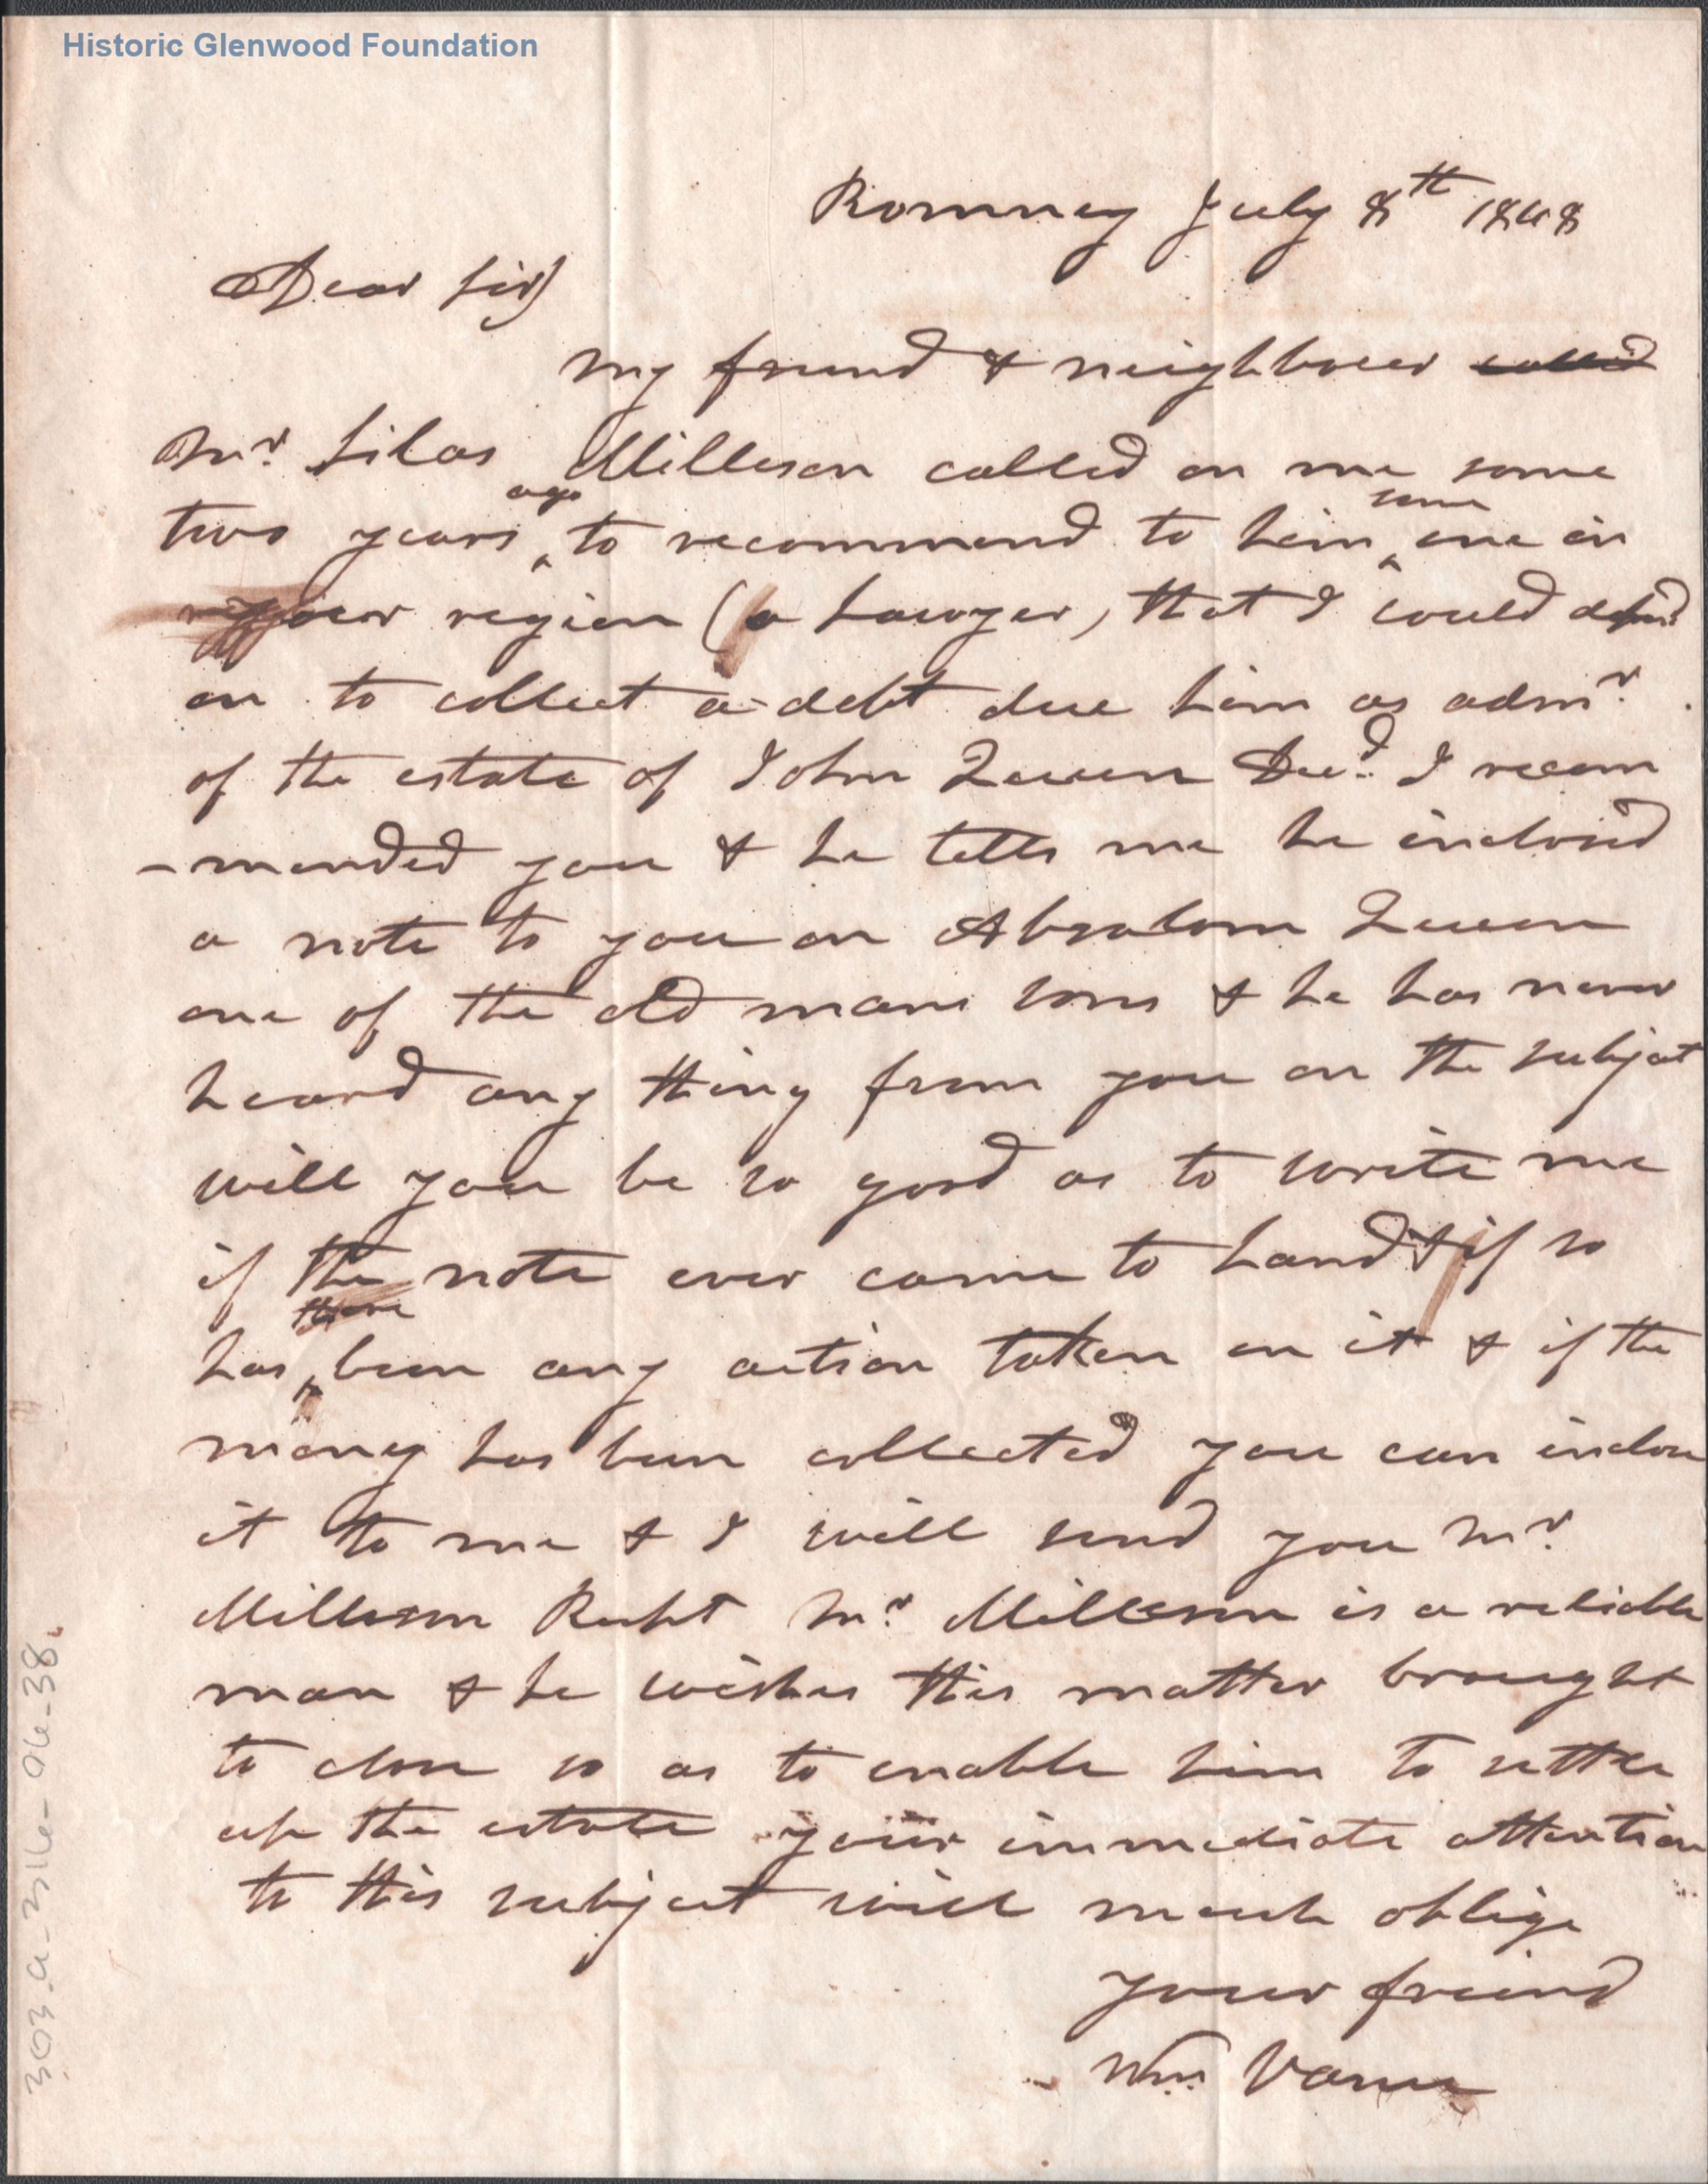 Historic Glenwood Foundation
Romney July 8th 1848
Dear Sir
My friend & neighbour called
Mr. Silas Milleson called on me some
two years ago to recommend to him some one in
your region (a Lawyer) that I could depend
on to collect a debt due him as admr.
of the estate of John Queen Decd. I recom
-mended you & he tells me he inclosed
a note to you on Absalom Queen
one of the old mans sons & he has never
heard any thing from you on the subject
will you be so good as to write me
if the note ever came to hand & if so
has there been any action taken on it & if the
money has been collected you can inclose
it to me & I will send you Mr.
Milleson Recpt Mr. Milleson is a reliable
man & he wishes this matter brought
to close so as to enable him to settle
up the estate your immediate attention
to this subject will much oblige
your friend
Wm. Vance
303-a-316-06-38